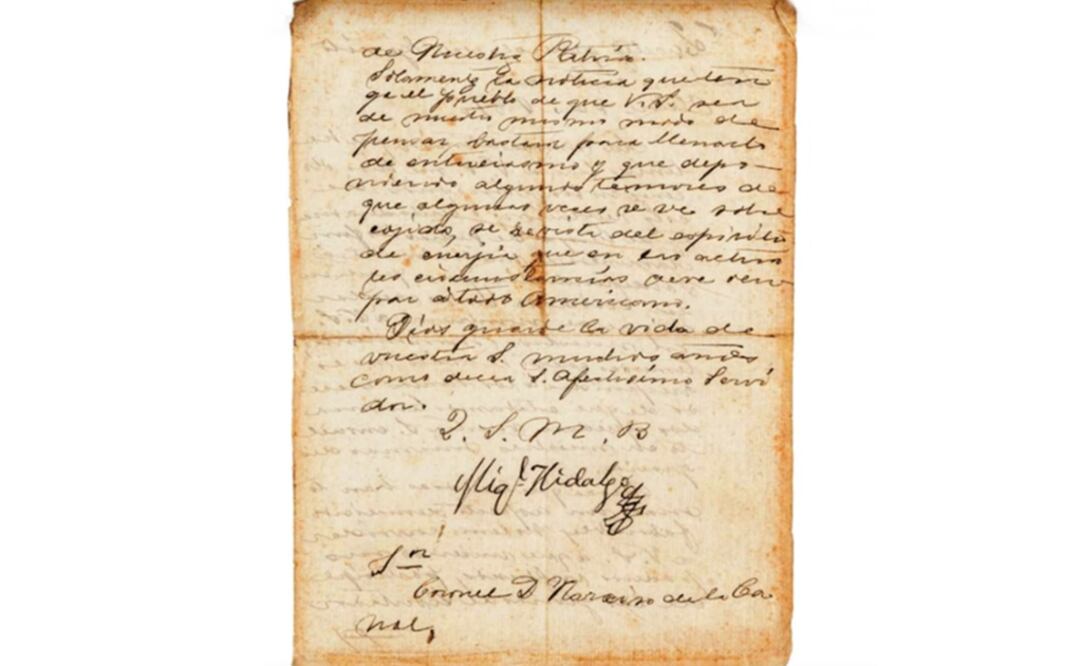 de Nuestra Patria.
Solamente la noticia que ten
ga el pueblo de que V.S. sea
de nuestro mismo modo de
pensar bastara para llenarlo
de entuciasmo y que depo-
niendo algunos temores de
que algunas veces se ve sobre
cojido, se revista del espiritu
de energia que en las actua
les circunstancias deve ocu
par á todo Americano.
Dios guarde la vida de
vuestra S. muchos años
como decea S. Afectisimo Servi
dor.
Q. S. M. B
Migl. Hidalgo
Sn
Coronel D. Narciso de la Ca
nal,